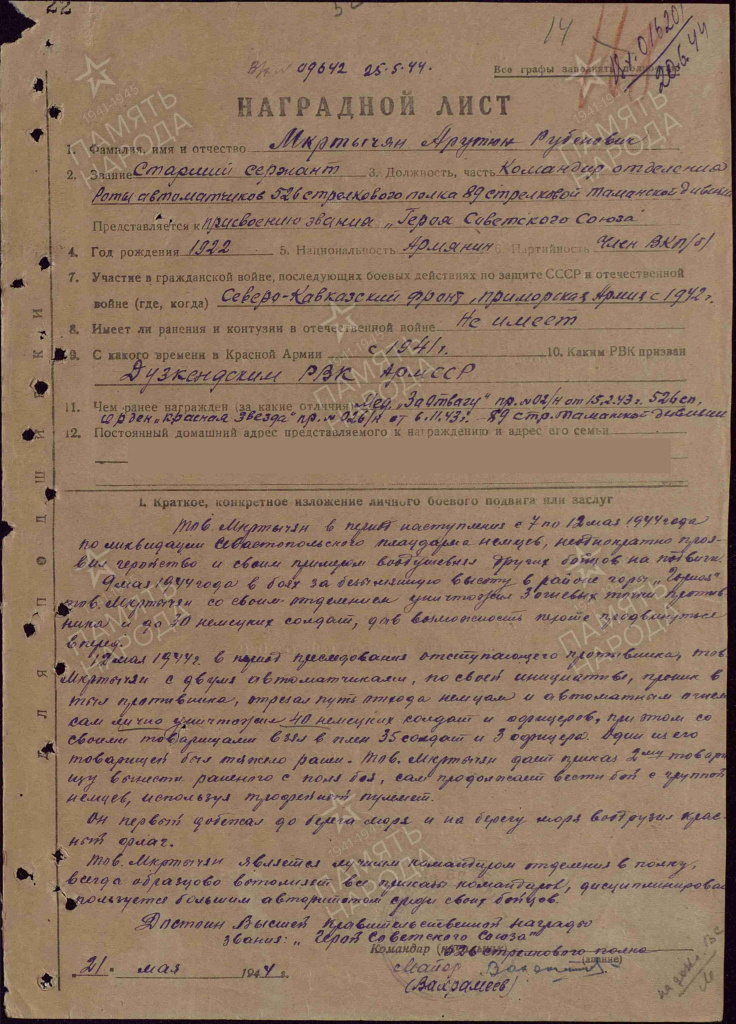 22
14
Вх. 01620/
20.6.44
Вх. 09642 25.5.44.
Все графы заполнять
НАГРАДНОЙ ЛИСТ
1. Фамилия, имя и отчество Мкртычян Арутюн Рубенович
2. Звание Старший сержант 3. Должность, часть Командир отделения
Роты автоматчиков 526 стрелкового полка 89 стрелковой Таманской дивизии
Представляется к присвоению звания „Героя Советского Союза"
4. Год рождения 1922 5. Национальность Армянин 6. Партийность Член ВКП/б/
7. Участие в гражданской войне, последующих боевых действиях по защите СССР и отечественной
войне (где, когда) Северо-Кавказский фронт, Приморская Армия с 1942 г.
8. Имеет ли ранения и контузии в отечественной войне Не имеет
9. С какого времени в Красной Армии с 1941 г. 10. Каким РВК призван
Дузкендским РВК АрмССР
11. Чем ранее награжден (за какие отличия) Мед. „За Отвагу" пр. № 03/н от 15.2.43 г. 526 сп,
орден „Красная Звезда" пр. № 026/н от 6.11.43 г. 89 стр. Таманской дивизии
12. Постоянный домашний адрес представляемого к награждению и адрес его семьи
I. Краткое, конкретное изложение личного боевого подвига или заслуг
Тов. Мкртычян в период наступления с 7 по 12 мая 1944 года
по ликвидации Севастопольского плацдарма немцев, неоднократно проя-
вил геройство и своим примером воодушевлял других бойцов на подвиги.
9 мая 1944 года в боях за безымянную высоту в районе горы „Горная"
тов. Мкртычян со своим отделением уничтожил 3 огневых точки против-
ника и до 30 немецких солдат, дав возможность пехоте продвинуться
вперед.
12 мая 1944 г. в период преследования отступающего противника, тов.
Мкртычян с двумя автоматчиками, по своей инициативе, проник в
тыл противника, отрезал путь отхода немцам и автоматным огнем
сам лично уничтожил 40 немецких солдат и офицеров, при этом со
своими товарищами взял в плен 35 солдат и 3 офицера. Один из его
товарищей был тяжело ранен. Тов. Мкртычян дает приказ 2му товари-
щу вынести раненого с поля боя, сам продолжает вести бой с группой
немцев, используя трофейный пулемет.
Он первый добежал до берега моря и на берегу моря водрузил крас-
ный флаг.
Тов. Мкртычян является лучшим командиром отделения в полку,
всегда образцово выполняет все приказы командиров, дисциплинирован
пользуется большим авторитетом среди своих бойцов.
Достоин Высшей Правительственной награды
звания: „Герой Советского Союза"
Командир (начальник) 526 стрелкового полка
(звание)
21. мая 1944 г. Майор
(Вахрамеев)
ДЛЯ ПОДШИВКИ
1941-1945
ПАМЯТЬ
НАРОДА